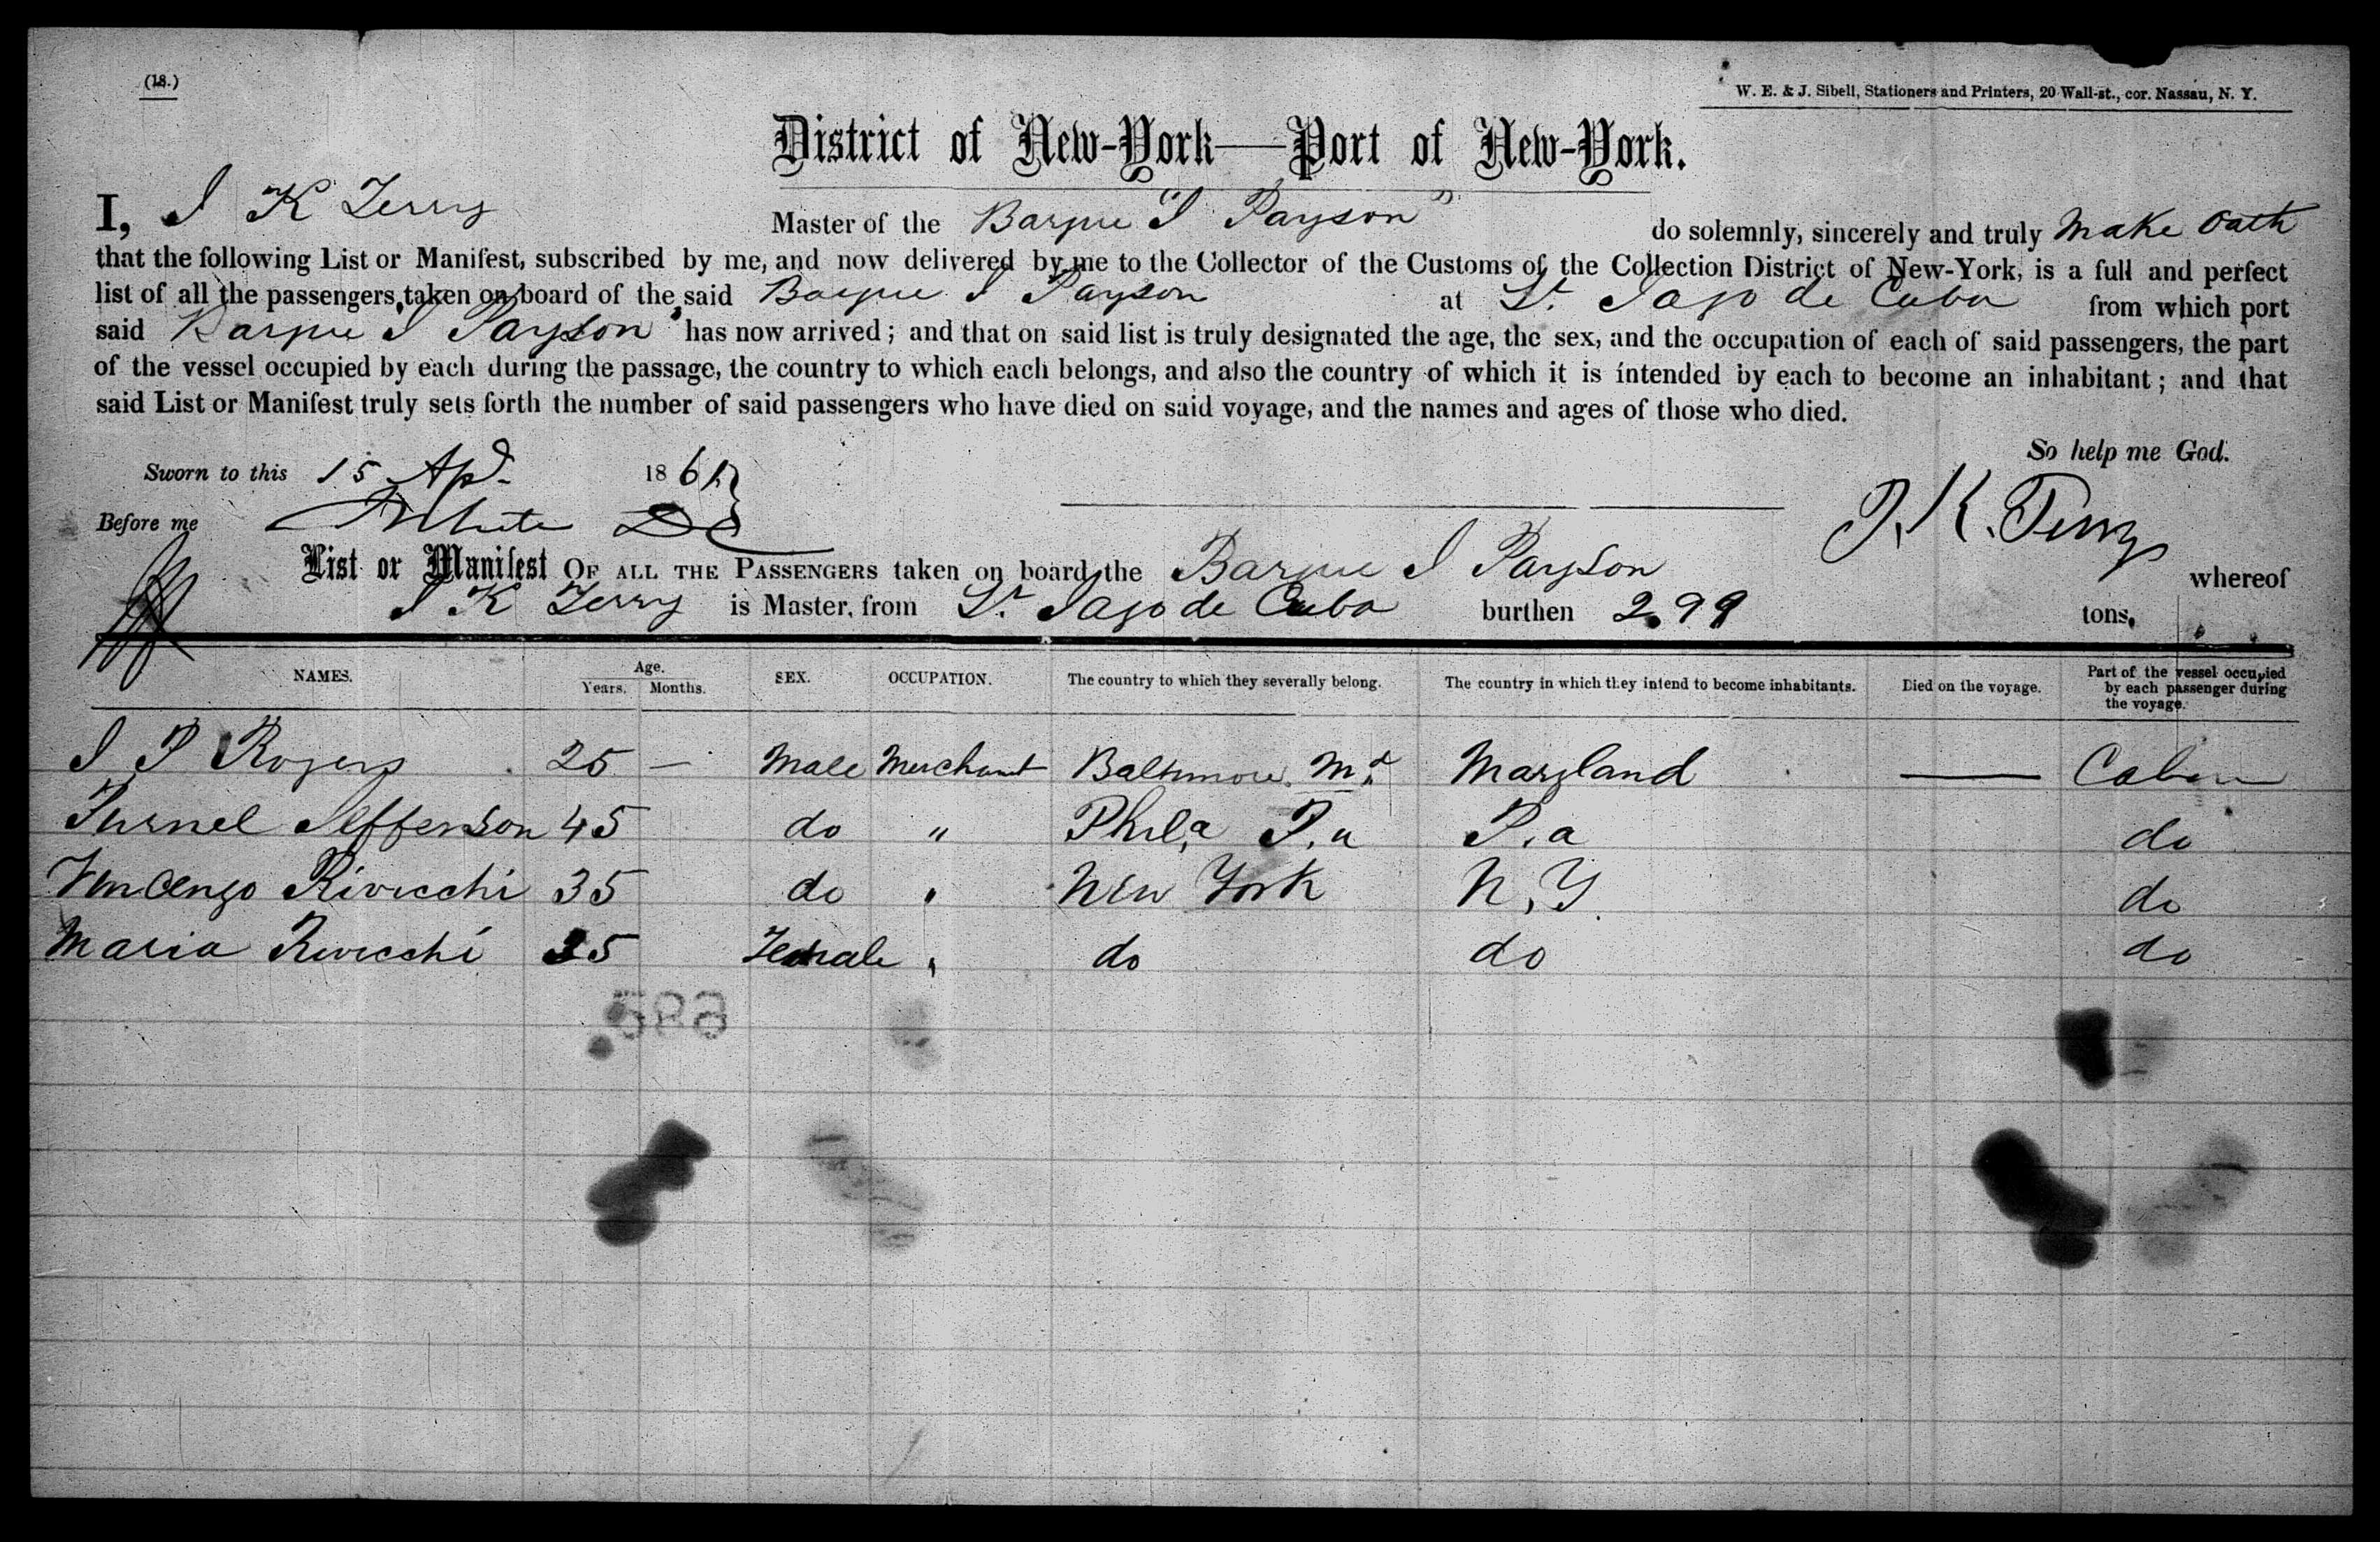 (18.)
W. E. & J. Sibell, Stationers and Printers, 20 Wall-st., cor. Nassau, N. Y.
District of New-York—Port of New-York.
I, J K Terry Master of the Barque "J Payson" do solemnly, sincerely and truly make oath
that the following List or Manifest, subscribed by me, and now delivered by me to the Collector of the Customs of the Collection District of New-York, is a full and perfect
list of all the passengers taken on board of the said Barque J Payson at St. Jago de Cuba from which port
said Barque J Payson has now arrived; and that on said list is truly designated the age, the sex, and the occupation of each of said passengers, the part
of the vessel occupied by each during the passage, the country to which each belongs, and also the country of which it is intended by each to become an inhabitant; and that
said List or Manifest truly sets forth the number of said passengers who have died on said voyage, and the names and ages of those who died.
So help me God.
Sworn to this 15 Apl. 186
Before me White J. K. Terry
List or Manifest OF ALL THE PASSENGERS taken on board the Barque J Payson whereof
J K Terry is Master, from St. Jago de Cuba burthen 299 tons.
NAMES. Age. Years. Months. SEX. OCCUPATION. The country to which they severally belong. The country in which they intend to become inhabitants. Died on the voyage. Part of the vessel occupied by each passenger during the voyage.
J P Rogers 25 — Male Merchant Baltimore Md Maryland — Cabin
Jefferson 45 do " Phila P.a P.a do
Vincenzo Rivicchi 35 do " New York N.Y. do
Maria Rivicchi 35 Female " do do do
589